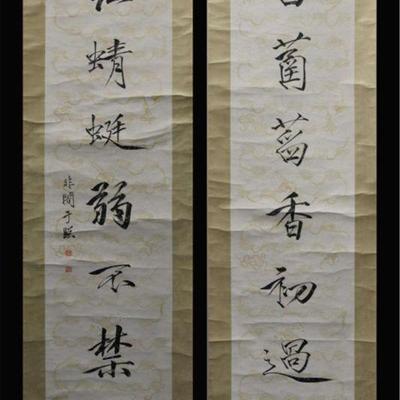 菡萏香初過
蜻蜓弱不禁
非闇于照